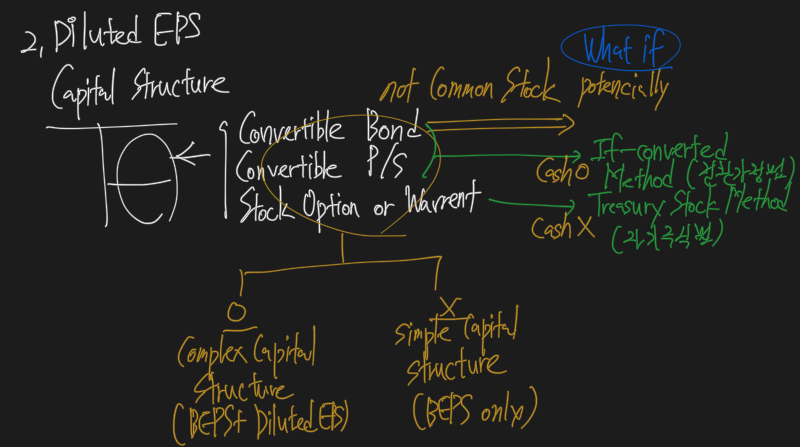 2, Diluted EPS
Capital Structure
What if
not Common Stock potencially
Convertible Bond
Convertible P/S
Stock Option or Warrent
Cash O
If-converted
Method (전환가정법)
Cash X
Treasury Stock Method
(자기주식법)
O
Complex Capital
Structure
(BEPS+ Diluted EPS)
X
Simple Capital
Structure
(BEPS only)